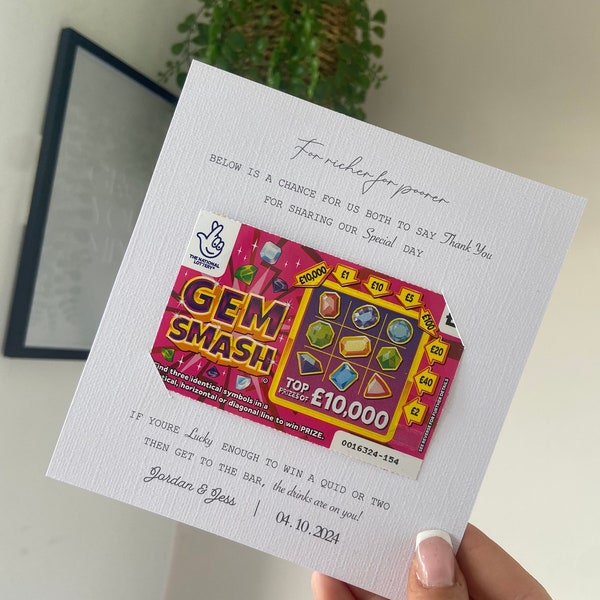 For richer for poorer
BELOW IS A CHANCE FOR US BOTH TO SAY Thank You
FOR SHARING OUR Special DAY
THE NATIONAL
LOTTERY®
GEM
SMASH
£10,000
£1
£10
£5
£100
£20
£40
£2
TOP
PRIZES OF £10,000
Find three identical symbols in a
tical, horizontal or diagonal line to win PRIZE.
SEE REVERSE FOR FURTHER DETAILS
0016324-154
IF YOURE Lucky ENOUGH TO WIN A QUID OR TWO
THEN GET TO THE BAR, the drinks are on you!
Jordan & Jess | 04.10.2024